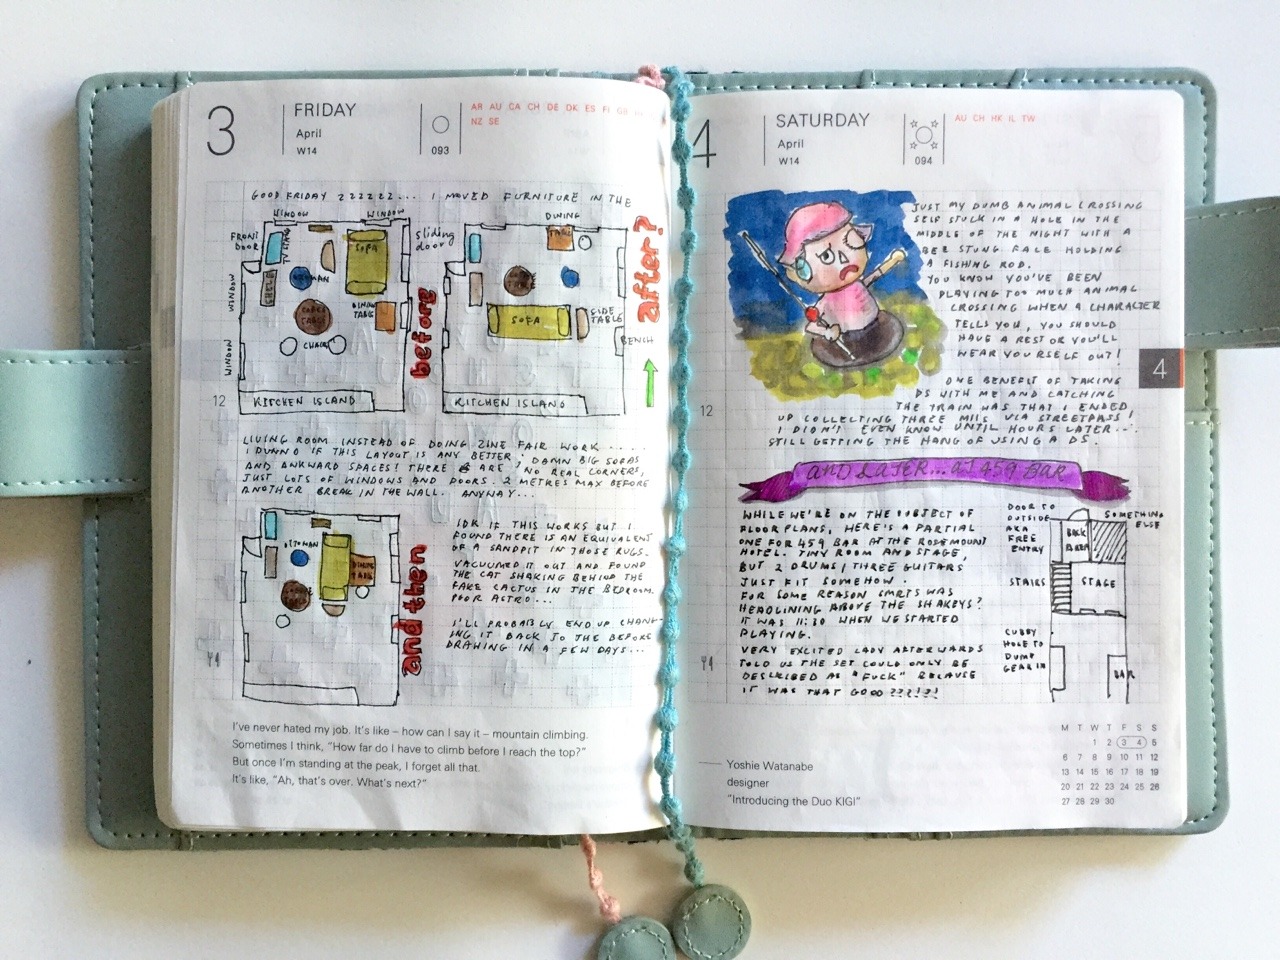 3
FRIDAY
April
W14
093
AR AU CA CH DE DK ES FI GB
NZ SE
GOOD FRIDAY ZZZZZZ... I MOVED FURNITURE IN THE
WINDOW
WINDOW
FRONT DOOR
SOFA
sliding door
WINDOW
COFFEE TABLE
DINING TABLE
CHAIR
WINDOW
KITCHEN ISLAND
before
DINING
TABLE
SOFA
SIDE TABLE
BENCH
KITCHEN ISLAND
after?
12
LIVING ROOM INSTEAD OF DOING ZINE FAIR WORK ....
I DUNNO IF THIS LAYOUT IS ANY BETTER; DAMN BIG SOFAS
AND AWKWARD SPACES! THERE ARE NO REAL CORNERS,
JUST LOTS OF WINDOWS AND DOORS. 2 METRES MAX BEFORE
ANOTHER BREAK IN THE WALL. ANYWAY...
OTTOMAN
DINING TABLE
and then
IDK IF THIS WORKS BUT I
FOUND THERE IS AN EQUIVALENT
OF A SANDPIT IN THOSE RUGS.
VACUUMED IT OUT AND FOUND
THE CAT SHAKING BEHIND THE
FAKE CACTUS IN THE BEDROOM.
POOR ASTRO...
I'LL PROBABLY END UP CHANG-
ING IT BACK TO THE BEFORE
DRAWING IN A FEW DAYS...
I've never hated my job. It's like – how can I say it – mountain climbing.
Sometimes I think, "How far do I have to climb before I reach the top?"
But once I'm standing at the peak, I forget all that.
It's like, "Ah, that's over. What's next?"
4
SATURDAY
April
W14
094
AU CH HK IL TW
JUST MY DUMB ANIMAL CROSSING
SELF STUCK IN A HOLE IN THE
MIDDLE OF THE NIGHT WITH A
BEE STUNG FACE HOLDING
A FISHING ROD.
YOU KNOW YOU'VE BEEN
PLAYING TOO MUCH ANIMAL
CROSSING WHEN A CHARACTER
TELLS YOU, YOU SHOULD
HAVE A REST OR YOU'LL
WEAR YOURSELF OUT!
4
ONE BENEFIT OF TAKING
DS WITH ME AND CATCHING
THE TRAIN WAS THAT I ENDED
12
UP COLLECTING THREE MIIS VIA STREETPASS!
I DIDN'T EVEN KNOW UNTIL HOURS LATER...
STILL GETTING THE HANG OF USING A DS.
AND LATER... AT 459 BAR
WHILE WE'RE ON THE SUBJECT OF
FLOORPLANS, HERE'S A PARTIAL
ONE FOR 459 BAR AT THE ROSEMOUNT
HOTEL. TINY ROOM AND STAGE,
BUT 2 DRUMS, THREE GUITARS
JUST FIT SOMEHOW.
FOR SOME REASON SMRTS WAS
HEADLINING ABOVE THE SHAKEYS?
IT WAS 11:30 WHEN WE STARTED
PLAYING.
VERY EXCITED LADY AFTERWARDS
TOLD US THE SET COULD ONLY BE
DESCRIBED AS "FUCK" BECAUSE
IT WAS THAT GOOD ???!?!
DOOR TO
OUTSIDE
AKA
FREE
ENTRY
SOMETHING
ELSE
STAIRS
STAGE
CUBBY
HOLE TO
DUMP
GEAR IN
BAR
Yoshie Watanabe
designer
"Introducing the Duo KIGI"
M T W T F S S
1 2 3 4 5
6 7 8 9 10 11 12
13 14 15 16 17 18 19
20 21 22 23 24 25 26
27 28 29 30